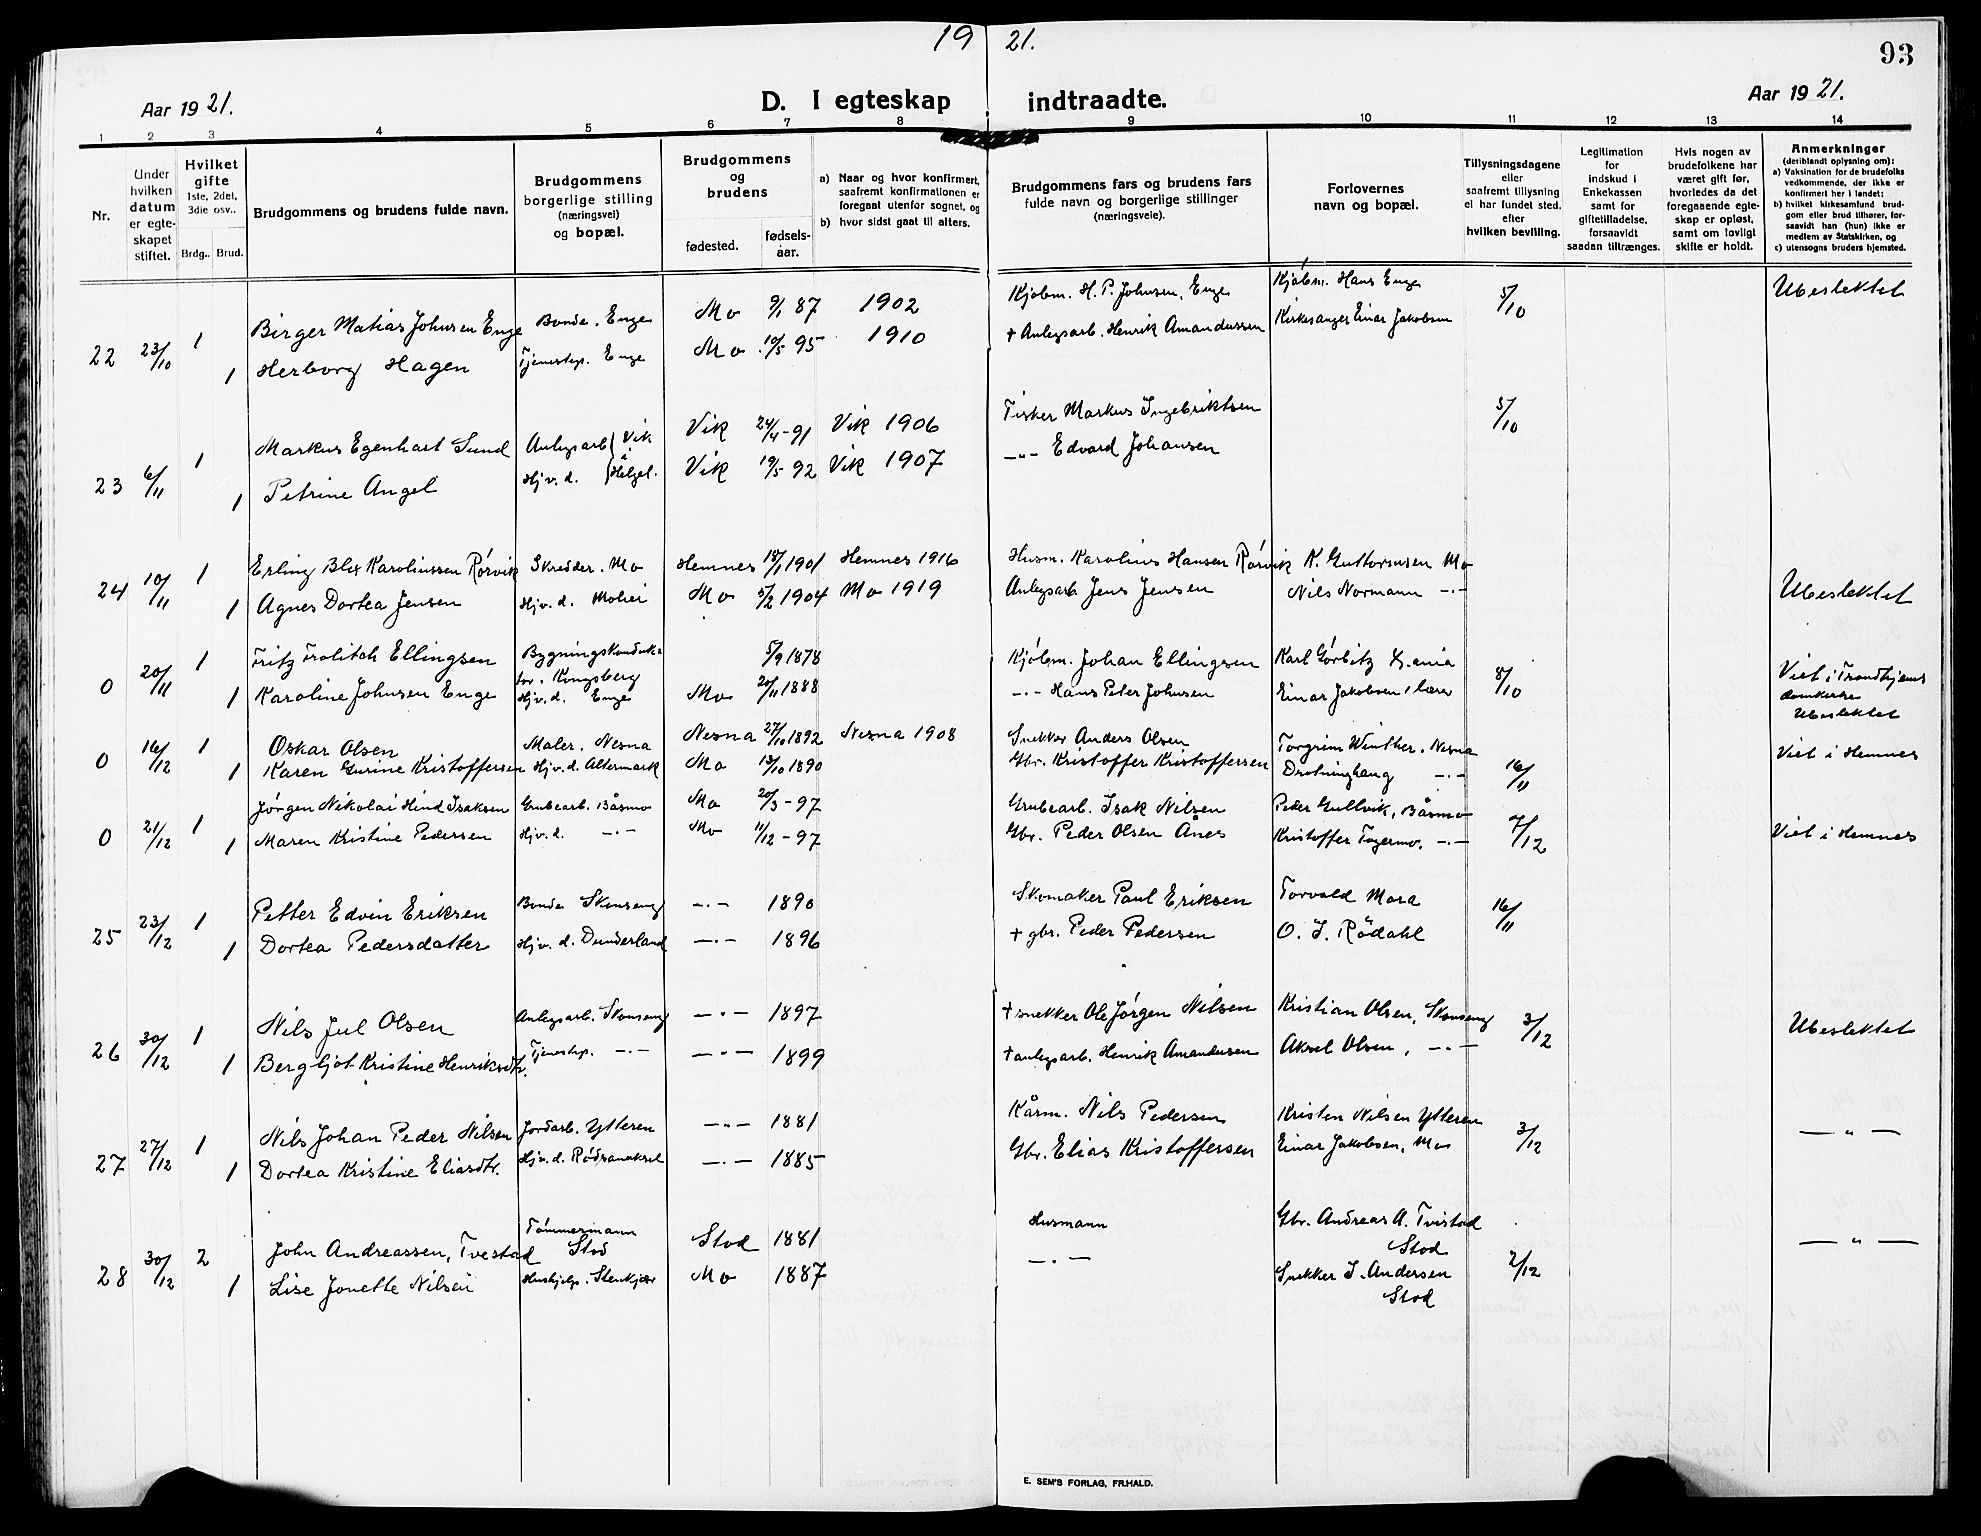 19 21.
93
Aar 19 21. D. I egteskap indtraadte. Aar 19 21.
1 2 3 4 5 6 7 8 9 10 11 12 13 14
Nr.
Under hvilken datum er egteskapet stiftet.
Hvilket gifte 1ste, 2det, 3die osv..
Brdg.. Brud.
Brudgommens og brudens fulde navn.
Brudgommens borgerlige stilling (næringsvei) og bopæl.
Brudgommens og brudens
fødested. fødsels-aar.
a) Naar og hvor konfirmert, saafremt konfirmationen er foregaat utenfor sognet, og
b) hvor sidst gaat til alters.
Brudgommens fars og brudens fars fulde navn og borgerlige stillinger (næringsveie).
Forlovernes navn og bopæl.
Tillysningsdagene eller saafremt tillysning ei har fundet sted. efter hvilken bevilling.
Legitimation for indskud i Enkekassen samt for giftetilladelse, forsaavidt saadan tiltrænges.
Hvis nogen av brudefolkene har været gift før, hvorledes da det foregaaende egteskap er opløst, samt om lovligt skifte er holdt.
Anmerkninger (deriblandt oplysning om):
a) Vaksination for de brudefolks vedkommende, der ikke er konfirmert her i landet;
b) hvilket kirkesamfund brudgom eller brud tilhører, forsaavidt han (hun) ikke er medlem av Statskirken, og
c) utensogns bruders hjemsted.
22 23/10 1 Birger Matias Johnsen Enge Bonde. Enge Mo 9/1 87 1902 Kjøbm. H. P. Johnsen, Enge Kjøbm. Hans Enge 5/10 Ubeslektet
1 Herborg Hagen Tjenestep. Enge Mo 10/5 95 1910 + Anlegsarb. Henrik Amandussen Kirkesanger Einar Jakobsen
23 6/11 1 Markus Egenhart Sund Anlegsarb Vik Vik 24/4-91 Vik 1906 Fisker Markus Ingebriktsen 5/10
1 Petrine Angel Hjv. d. i Helgel. Vik 19/5 92 Vik 1907 -"- Edvard Johansen
24 10/11 1 Erling Blix Karoliussen Rørvik Skredder. Mo Hemnes 18/1 1901 Hemnes 1916 Husm. Karolius Hansen Rørvik K. Guttormsen Mo
1 Agnes Dortea Jensen Hjv. d. Mohei Mo 5/2 1904 Mo 1919 Anlegsarb. Jens Jensen Nils Normann -"- Ubeslektet
0 20/11 1 Fritz Frolitch Ellingsen Bygningskonduktør. Kongsberg 5/9 1878 Kjøbm. Johan Ellingsen Karl Gørbitz 8/10 Viet i Trondhjems domkirke
1 Karoline Johnsen Enge Hjv. d. Enge Mo 20/11 1888 -"- Hans Peter Johnsen Einar Jakobsen, lærer Ubeslektet
0 16/12 1 Oskar Olsen Maler. Nesna Nesna 27/10 1892 Nesna 1908 Snekker Anders Olsen Torgrim Winther. Nesna 16/11 Viet i Hemnes
1 Karen Gurine Kristoffersen Hjv. d. Altermark Mo 13/10 1890 Gbr. Kristoffer Kristoffersen Drotninghaug -"-
0 21/12 1 Jørgen Nikolai Hind Isaksen Grubearb. Båsmo Mo 20/3-97 Grubearb. Isak Nilsen Peder Gullvik, Båsmo 7/12 Viet i Hemnes
1 Maren Kristine Pedersen Hjv. d. -"- Mo 11/12-97 Gbr. Peder Olsen Ånes Kristoffer Fagermo. -"-
25 23/12 1 Petter Edvin Eriksen Bonde Skonseng -"- 1890 Skomaker Paul Eriksen Torvald Mora 16/11
1 Dortea Pedersdatter Hjv. d. Dunderland -"- 1896 + gbr. Peder Pedersen O. J. Rødahl
26 30/12 1 Nils Jul Olsen Anlegsarb. Skonseng -"- 1897 + snekker Ole Jørgen Nilsen Kristian Olsen, Skonseng 3/12 Ubeslektet
1 Bergljot Kristine Henriksdtr. Tjenestep. -"- -"- 1899 + anlegsarb. Henrik Amandusen Aksel Olsen, -"-
27 27/12 1 Nils Johan Peder Nilsen Jordarb. Ytteren -"- 1881 Kårm. Nils Pedersen Kristen Nilsen Ytteren 3/12 -"-
1 Dortea Kristine Eliasdtr. Hjv. d. -"- 1885 Gbr. Elias Kristoffersen Einar Jakobsen, Mo
28 30/12 2 John Andreassen, Tvestad Tømmermann Stod Stod 1881 Husmann Gbr. Andreas A. Tvistad Stod 2/12 -"-
1 Lise Jonette Nilsen Hushjelp. Stenkjær Mo 1887 -"- Snekker J. Andersen Stod
E. SEM'S FORLAG, FR.HALD.